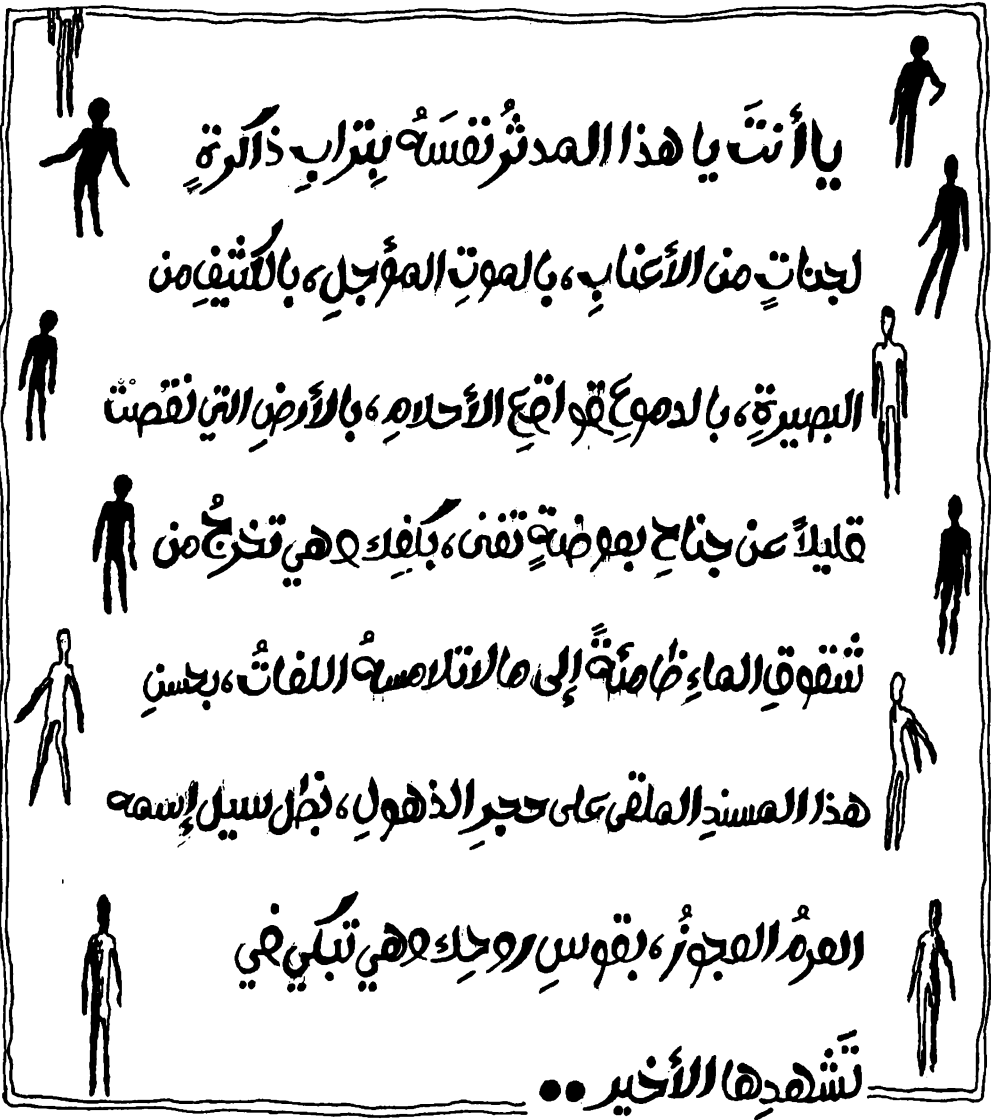 يا أنتَ يا هذا المدثرُ نفسَهُ بِترابِ ذاكرةٍ
لجناتٍ من الأعنابِ، بالموتِ المؤجلِ، بالكثيفِ من
البصيرةِ، بالدموعِ قواقعِ الأحلامِ، بالأرضِ التي نقصتْ
قليلاً عن جناحِ بعوضةٍ تفنى، بكفِك وهي تخرجُ من
شقوقِ الماءِ ظامئةً إلى ما لا تلامسهُ اللغاتُ، بحسنِ
هذا المسندِ الملقى على حجرِ الذهولِ، بظل سيل إسمه
العرمُ العجوزُ، بقوسِ روحِك وهي تبكي في
تَشهدِها الأخير ..